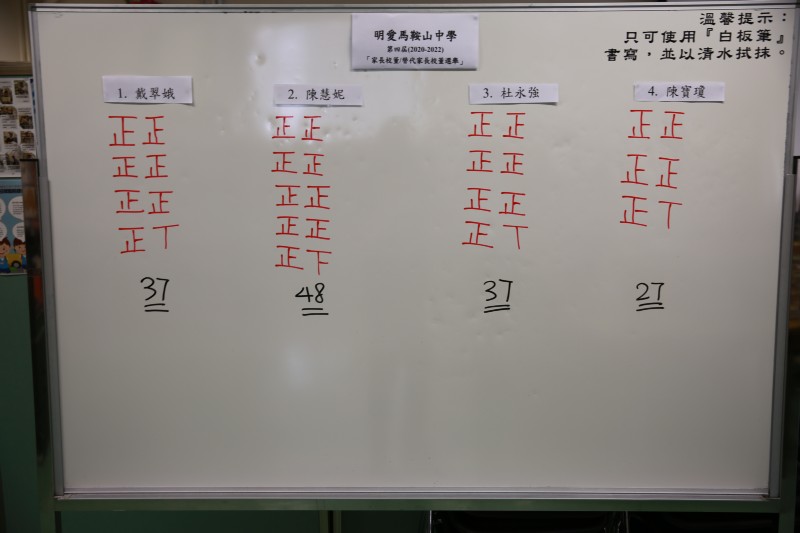 明愛馬鞍山中學
第四屆(2020-2022)
「家長校董/替代家長校董選舉」
溫馨提示：
只可使用『白板筆』
書寫，並以清水拭抹。
1. 戴翠娥
2. 陳慧妮
3. 杜永強
4. 陳寶瓊
正正 正正 正正 正正
正正 正正 正正 正正
正正 正正 正正 正丅
正丅 正正 正丅
正下
37 48 37 27